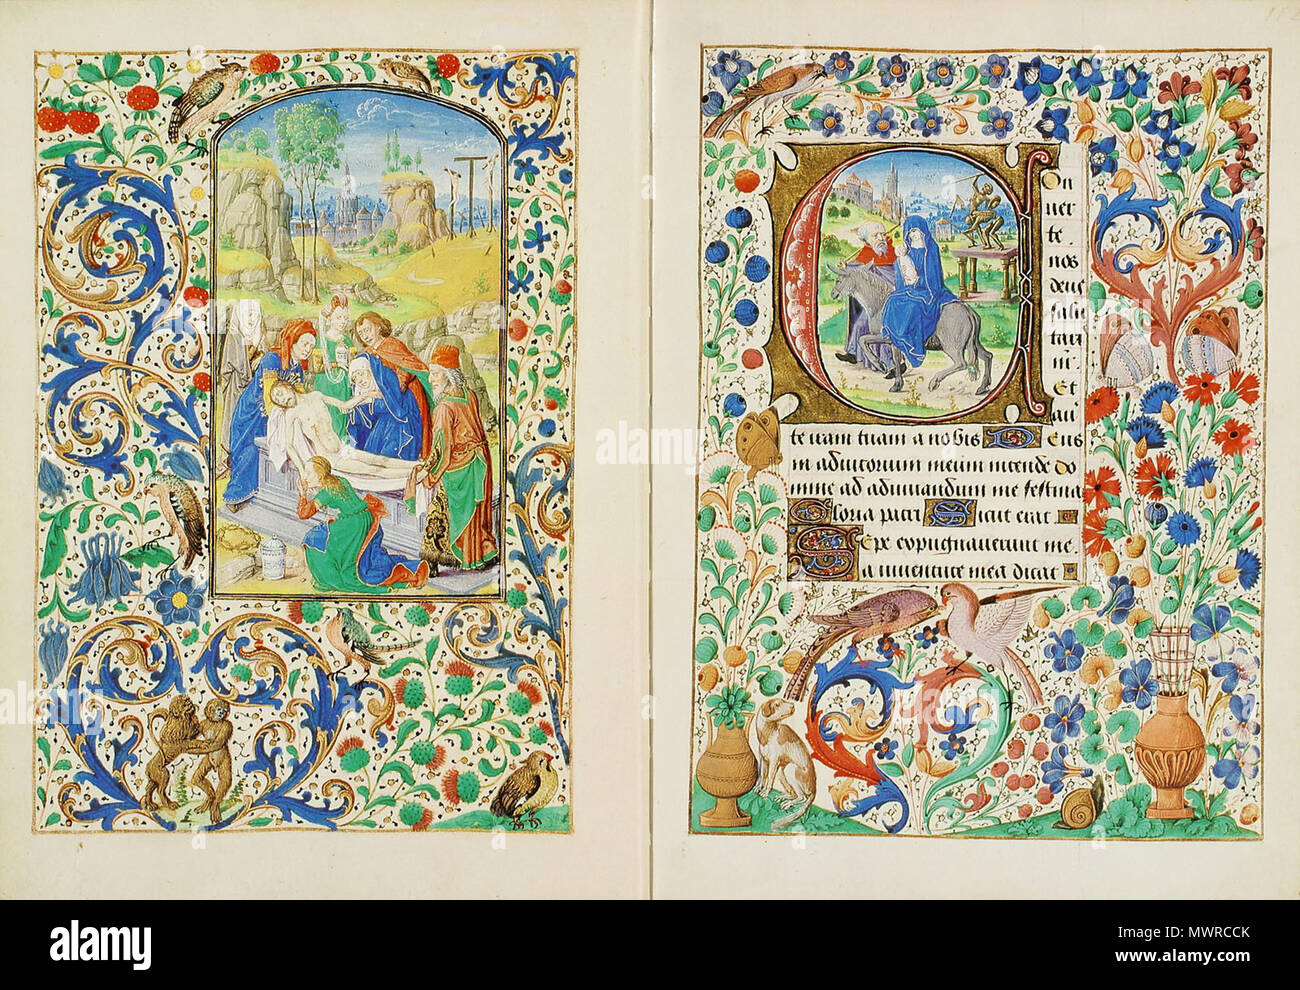 Con
uer
te
nos
deus
salu
taris
Et
auer
te iram tuam a nobis Deus
in adiutorium meum intende Do
mine ad adiuuandum me festina
Gloria patri Sicut erat
Sepe expugnauerunt me
a iuuentute mea dicat
alamy
Image ID: MWRCCK
www.alamy.com